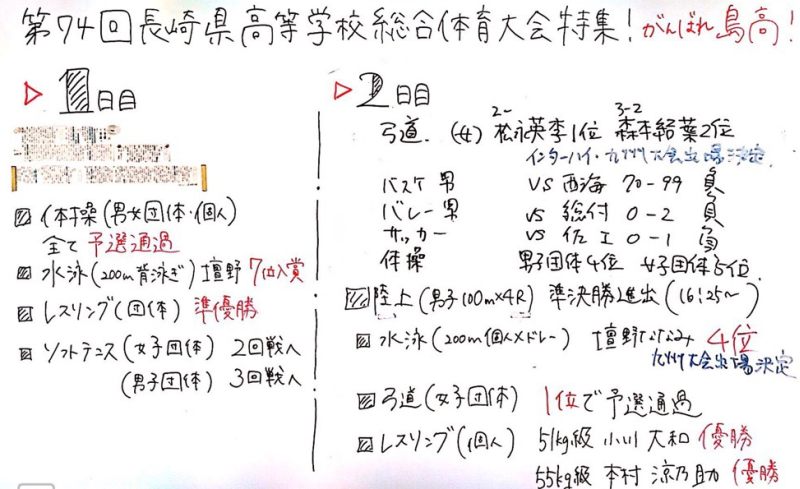 第74回長崎県高等学校総合体育大会特集! がんばれ島高!
▷ 1日目
体操(男女団体・個人)
全て予選通過
水泳(200m背泳ぎ) 壇野 7位入賞
レスリング(団体) 準優勝
ソフトテニス(女子団体) 2回戦へ
(男子団体) 3回戦へ
▷ 2日目
2- 3-2
弓道 (女) 松永英李1位 森本結葉2位
インターハイ・九州大会出場決定
バスケ男 VS 西海 70-99 負
バレー男 VS 総付 0-2 負
サッカー VS 佐工 0-1 負
体操 男子団体4位 女子団体5位
陸上(男子100m×4R) 準決勝進出(16:25〜)
水泳(200m個人メドレー) 壇野ななみ 4位
九州大会出場決定
弓道(女子団体) 1位で予選通過
レスリング(個人) 51kg級 小川大和 優勝
55kg級 本村涼乃助 優勝